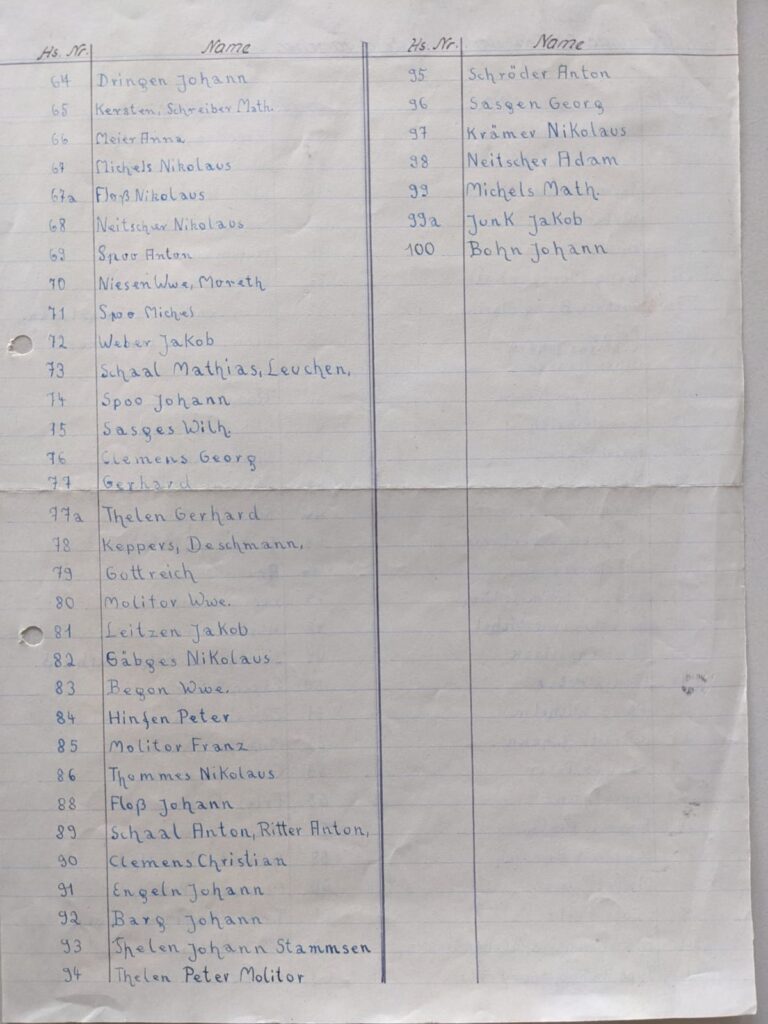 Hs. Nr. Name
64 Dringen Johann
65 Kersten, Schreiber Math.
66 Meier Anna
67 Michels Nikolaus
67a Floß Nikolaus
68 Neitscher Nikolaus
69 Spoo Anton
70 Niesen Wwe, Moreth
71 Spoo Michel
72 Weber Jakob
73 Schaal Mathias, Leuchen,
74 Spoo Johann
75 Sasges Wilh.
76 Clemens Georg
77 Gerhard
77a Thelen Gerhard
78 Keppers, Deschmann,
79 Gottreich
80 Molitor Wwe.
81 Leitzen Jakob
82 Gäbges Nikolaus
83 Begon Wwe.
84 Hinfen Peter
85 Molitor Franz
86 Thommes Nikolaus
88 Floß Johann
89 Schaal Anton, Ritter Anton,
90 Clemens Christian
91 Engeln Johann
92 Barg Johann
93 Thelen Johann Stammsen
94 Thelen Peter Molitor
Hs. Nr. Name
95 Schröder Anton
96 Sasgen Georg
97 Krämer Nikolaus
98 Neitscher Adam
99 Michels Math.
99a Junk Jakob
100 Bohn Johann